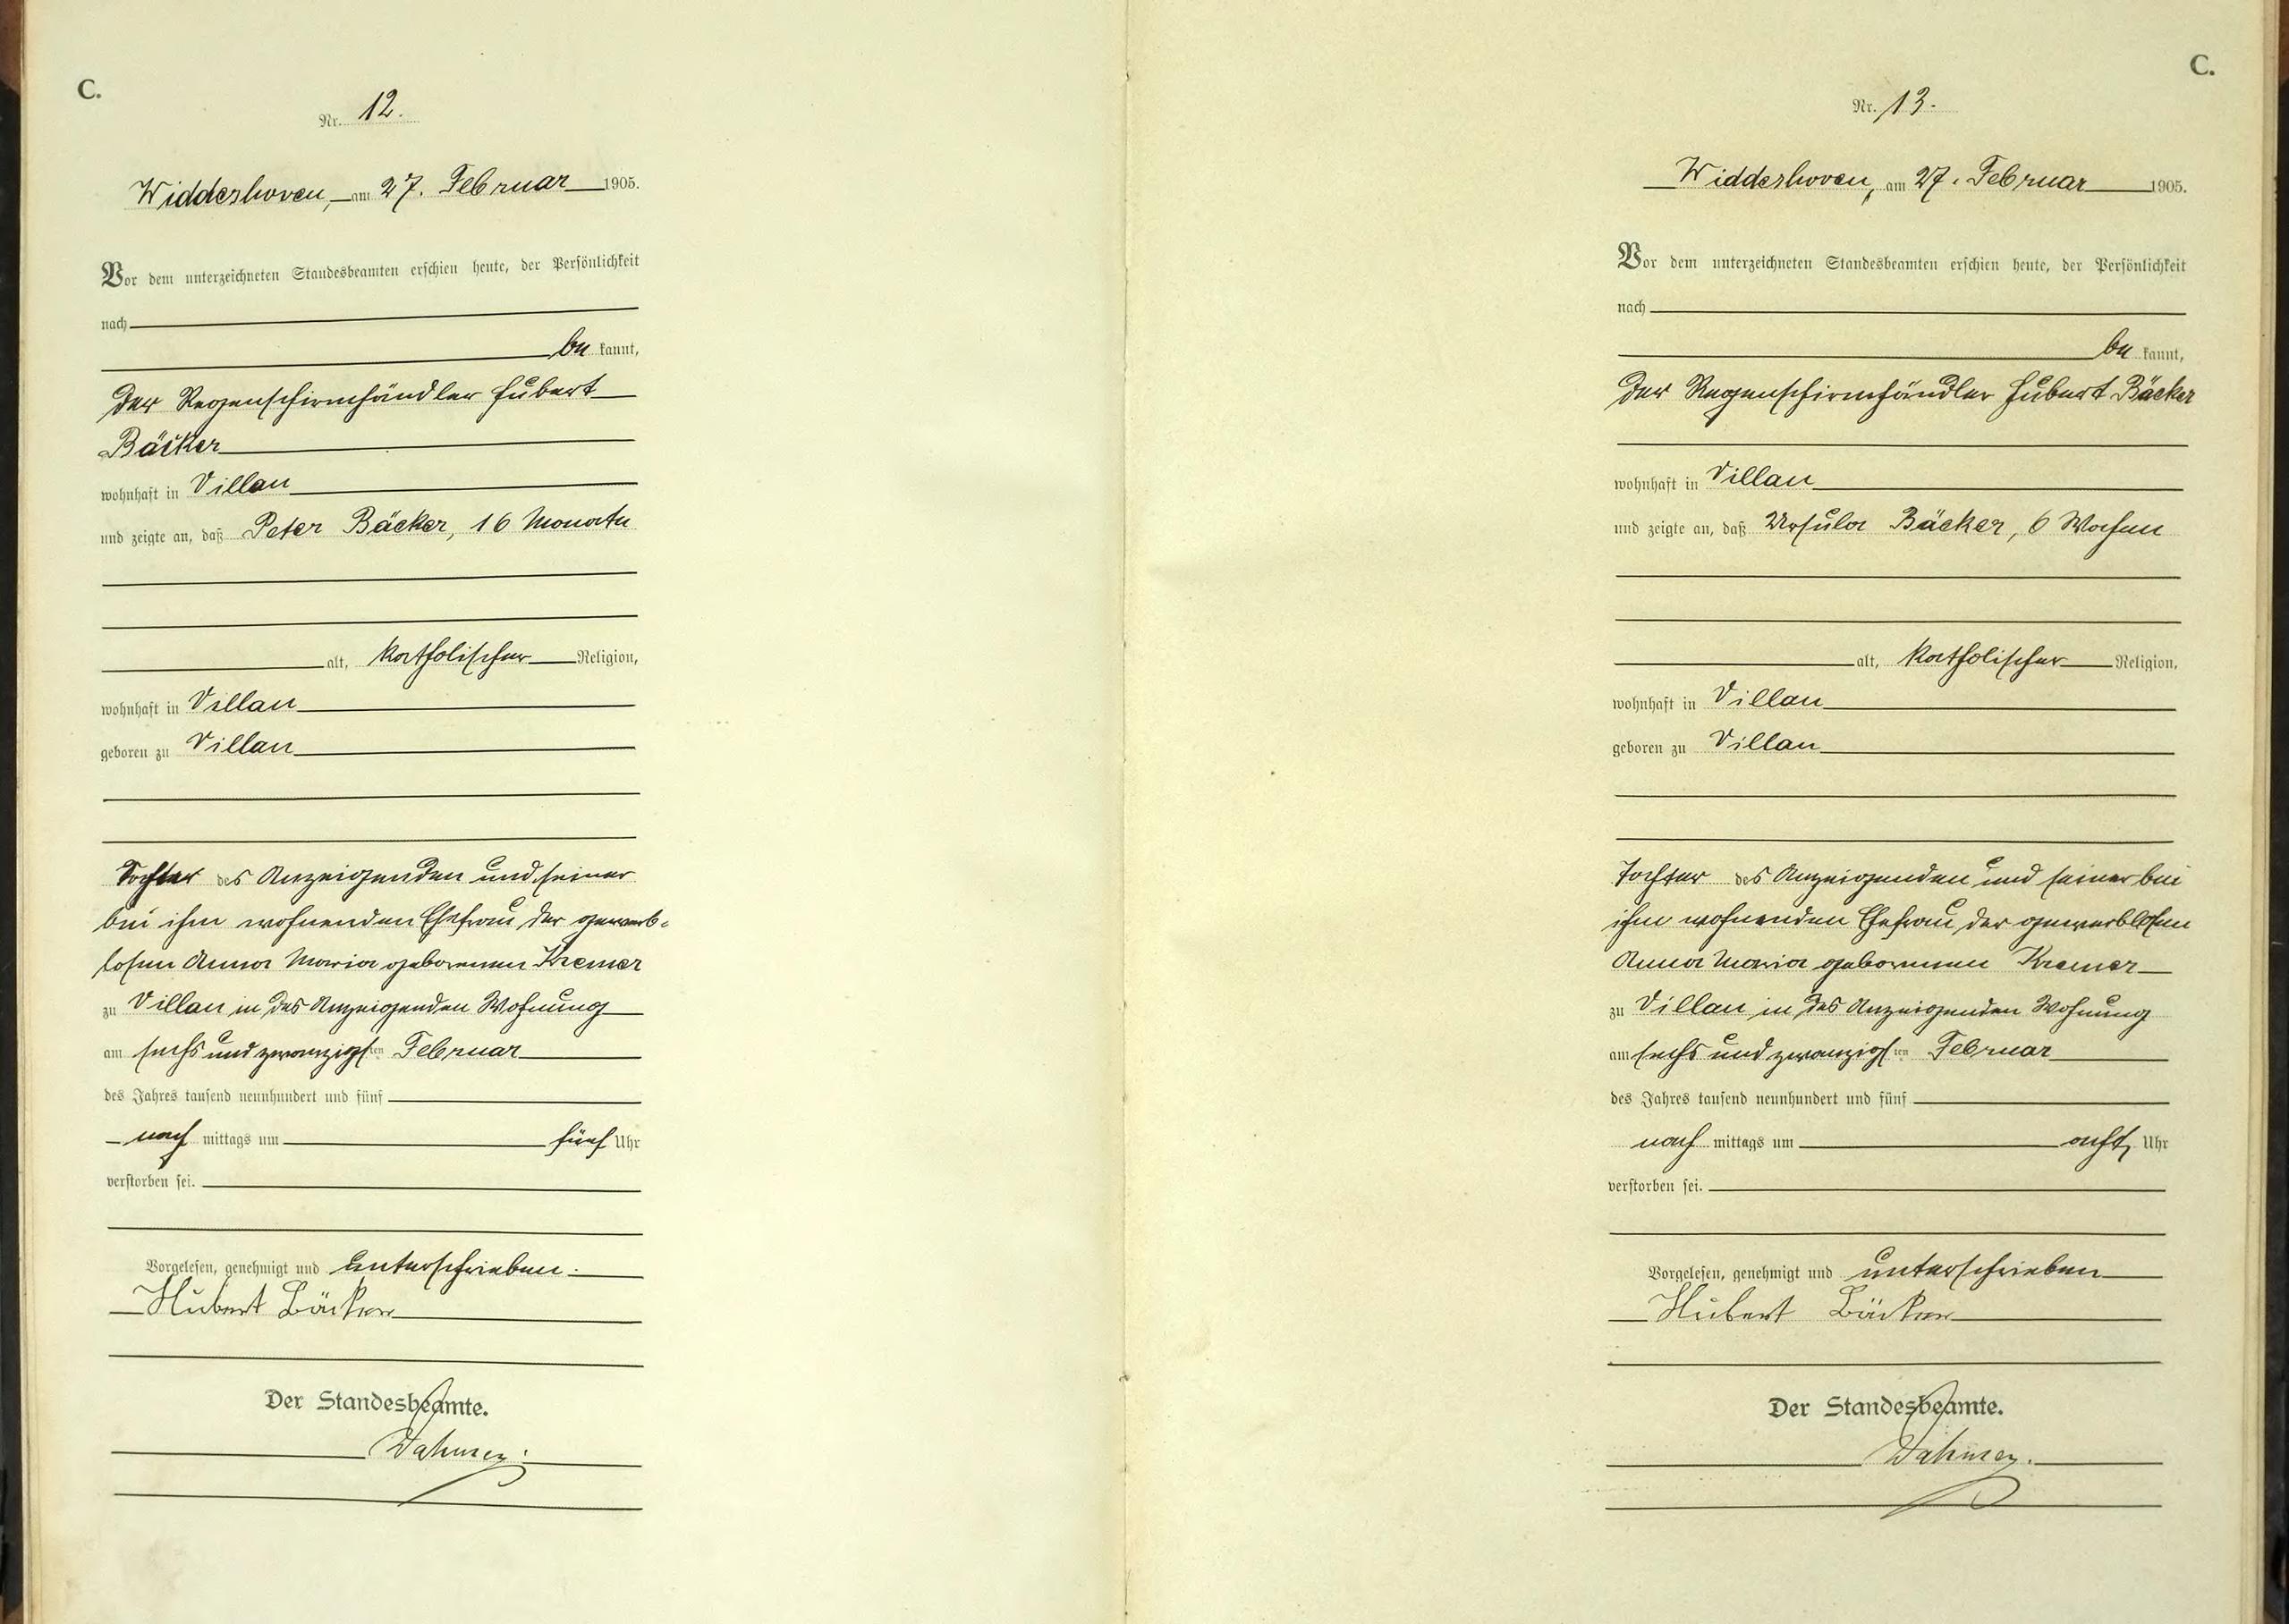 C.
Nr. 12.
Widdeshoven, am 27. Februar 1905.
Vor dem unterzeichneten Standesbeamten erschien heute, der Persönlichkeit
nach
be kannt,
der Regenschirmhändler Hubert
Bäcker
wohnhaft in Villau
und zeigte an, daß Peter Bäcker, 16 Monate
alt, katholischer Religion,
wohnhaft in Villau
geboren zu Villau
Tochter des Anzeigenden und seiner
bei ihm wohnenden Ehefrau der gewerb-
losen Anna Maria geborenen Kremer
zu Villau in des Anzeigenden Wohnung
am sechs und zwanzigsten Februar
des Jahres tausend neunhundert und fünf
nach mittags um fünf Uhr
verstorben sei.
Vorgelesen, genehmigt und unterschrieben.
Hubert Bäcker
Der Standesbeamte.
Dahmen.
C.
Nr. 13.
Widdeshoven, am 27. Februar 1905.
Vor dem unterzeichneten Standesbeamten erschien heute, der Persönlichkeit
nach
be kannt,
der Regenschirmhändler Hubert Bäcker
wohnhaft in Villau
und zeigte an, daß Ursula Bäcker, 6 Wochen
alt, katholischer Religion,
wohnhaft in Villau
geboren zu Villau
Tochter des Anzeigenden und seiner bei
ihm wohnenden Ehefrau der gewerblosen
Anna Maria geborenen Kremer
zu Villau in des Anzeigenden Wohnung
am sechs und zwanzigsten Februar
des Jahres tausend neunhundert und fünf
nach mittags um acht Uhr
verstorben sei.
Vorgelesen, genehmigt und unterschrieben
Hubert Bäcker
Der Standesbeamte.
Dahmen.